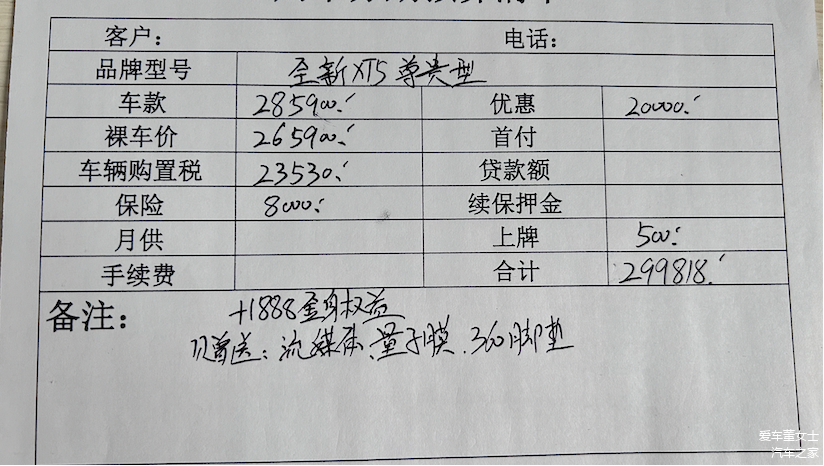 客户： 电话：
品牌型号 全新XT5 尊贵型
车款 285900. 优惠 20000.
裸车价 265900. 首付
车辆购置税 23530. 贷款额
保险 8000. 续保押金
月供 上牌 500.
手续费 合计 299818.
备注： +1888金身权益
赠送：流媒体、量子膜、360脚垫
爱车董女士
汽车之家